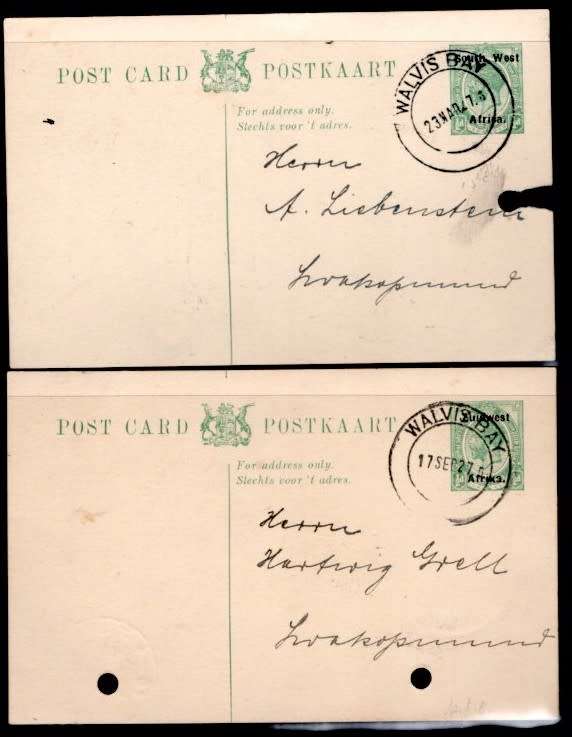 POST CARD POSTKAART
South West
Africa.
WALVIS BAY
23 MAR 27.
For address only.
Slechts voor 't adres.
Herrn
A. Liebenstein
Swakopmund
POST CARD POSTKAART
Zuidwest
Afrika.
WALVIS BAY
17 SEP 27.
For address only.
Slechts voor 't adres.
Herrn
Hartwig Grell
Swakopmund